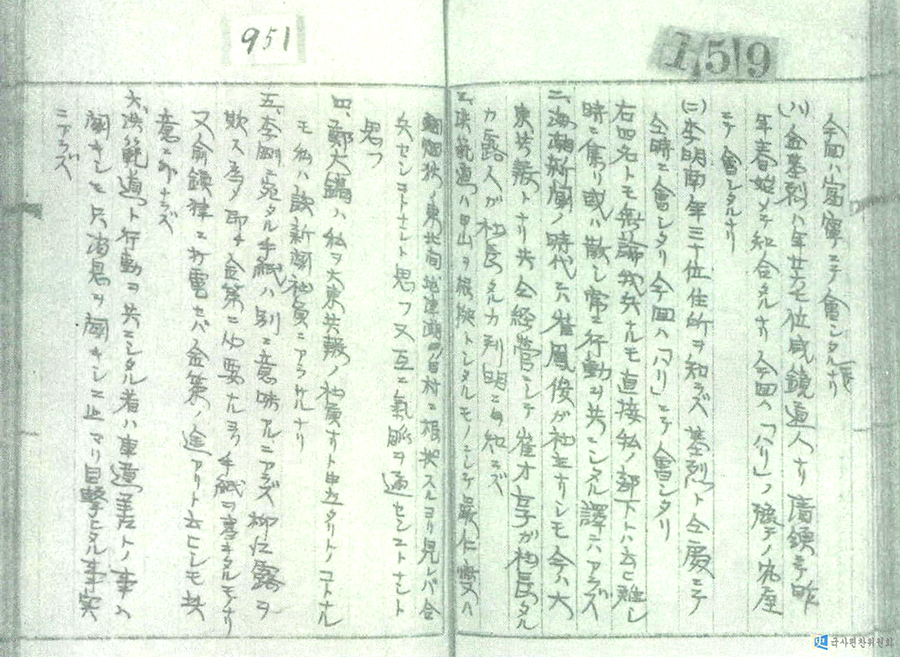 159
今回ハ富寧ニテ會シタルナリ
(ハ) 金基烈ハ年廿七位咸鏡道人ナリ 廣鎮ニテ昨
年春始メテ知合タルナリ 今回ハ「ハリ」ノ張
ニテ會シタルナリ
(ニ) 李明南年三十位住所ヲ知ラズ基烈ト同處ニテ
仝時ニ會シタリ今回ハ「ハリ」ニテ會シタリ
右四名トモ無論我兵ナルモ直接私ノ部下トハ云ヒ難シ
時ニ集リ或ハ散シ常ニ行動ヲ共ニシタル譯ニハアラズ
二、海潮新聞ノ時代ニハ崔鳳俊ガ社主ナリシモ今ハ大
東共報トナリ共同経営ニシテ崔才亨ガ社長タル
カ露人ガ社長タルカ判明ニ知ラズ
三、洪範道ハ甲山ヲ根據トシタルモノニシテ嚴仁燮ハ
村ニ根拠スルヨリ見レバ合
兵セシコトナシト思フ又互ニ氣脈ヲ通セシコトナシト
思フ
四、鄭大鎬ハ私ヲ大東共報ノ社員ナリト申立タリトノコトナル
モ私ハ該新聞社員ニアラザルナリ
五、李剛ニ宛タル手紙ハ別ニ意味アルニアラズ柳仁露ヲ
欺ス為メ即チ金策ニ必要ナルヨリ手紙ヲ書キタルモノナリ
又金策ノ途アリト云ヒシモ其
意ニ外ナラズ
六、洪範道ト行動ヲ共ニシタル者ハ車道善ナリトノ事ハ
聞キシモ只消息ヲ聞キシニ止マリ目撃シタル事実
ニアラズ
951
국사편찬위원회